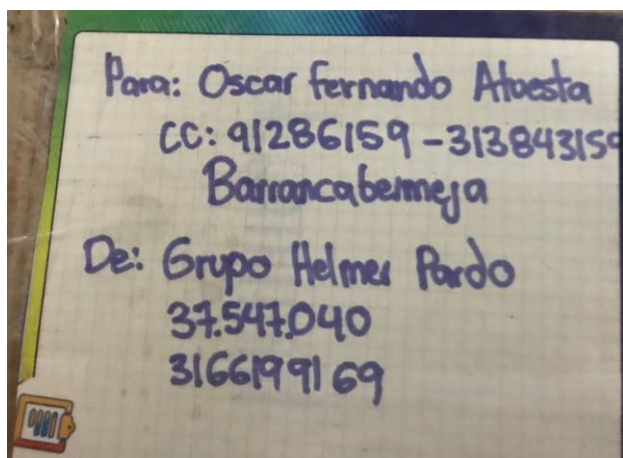 Para: Oscar fernando Atuesta
CC: 91286159 - 313843159
Barrancabermeja
De: Grupo Helmer Pardo
37.547.040
3166199169